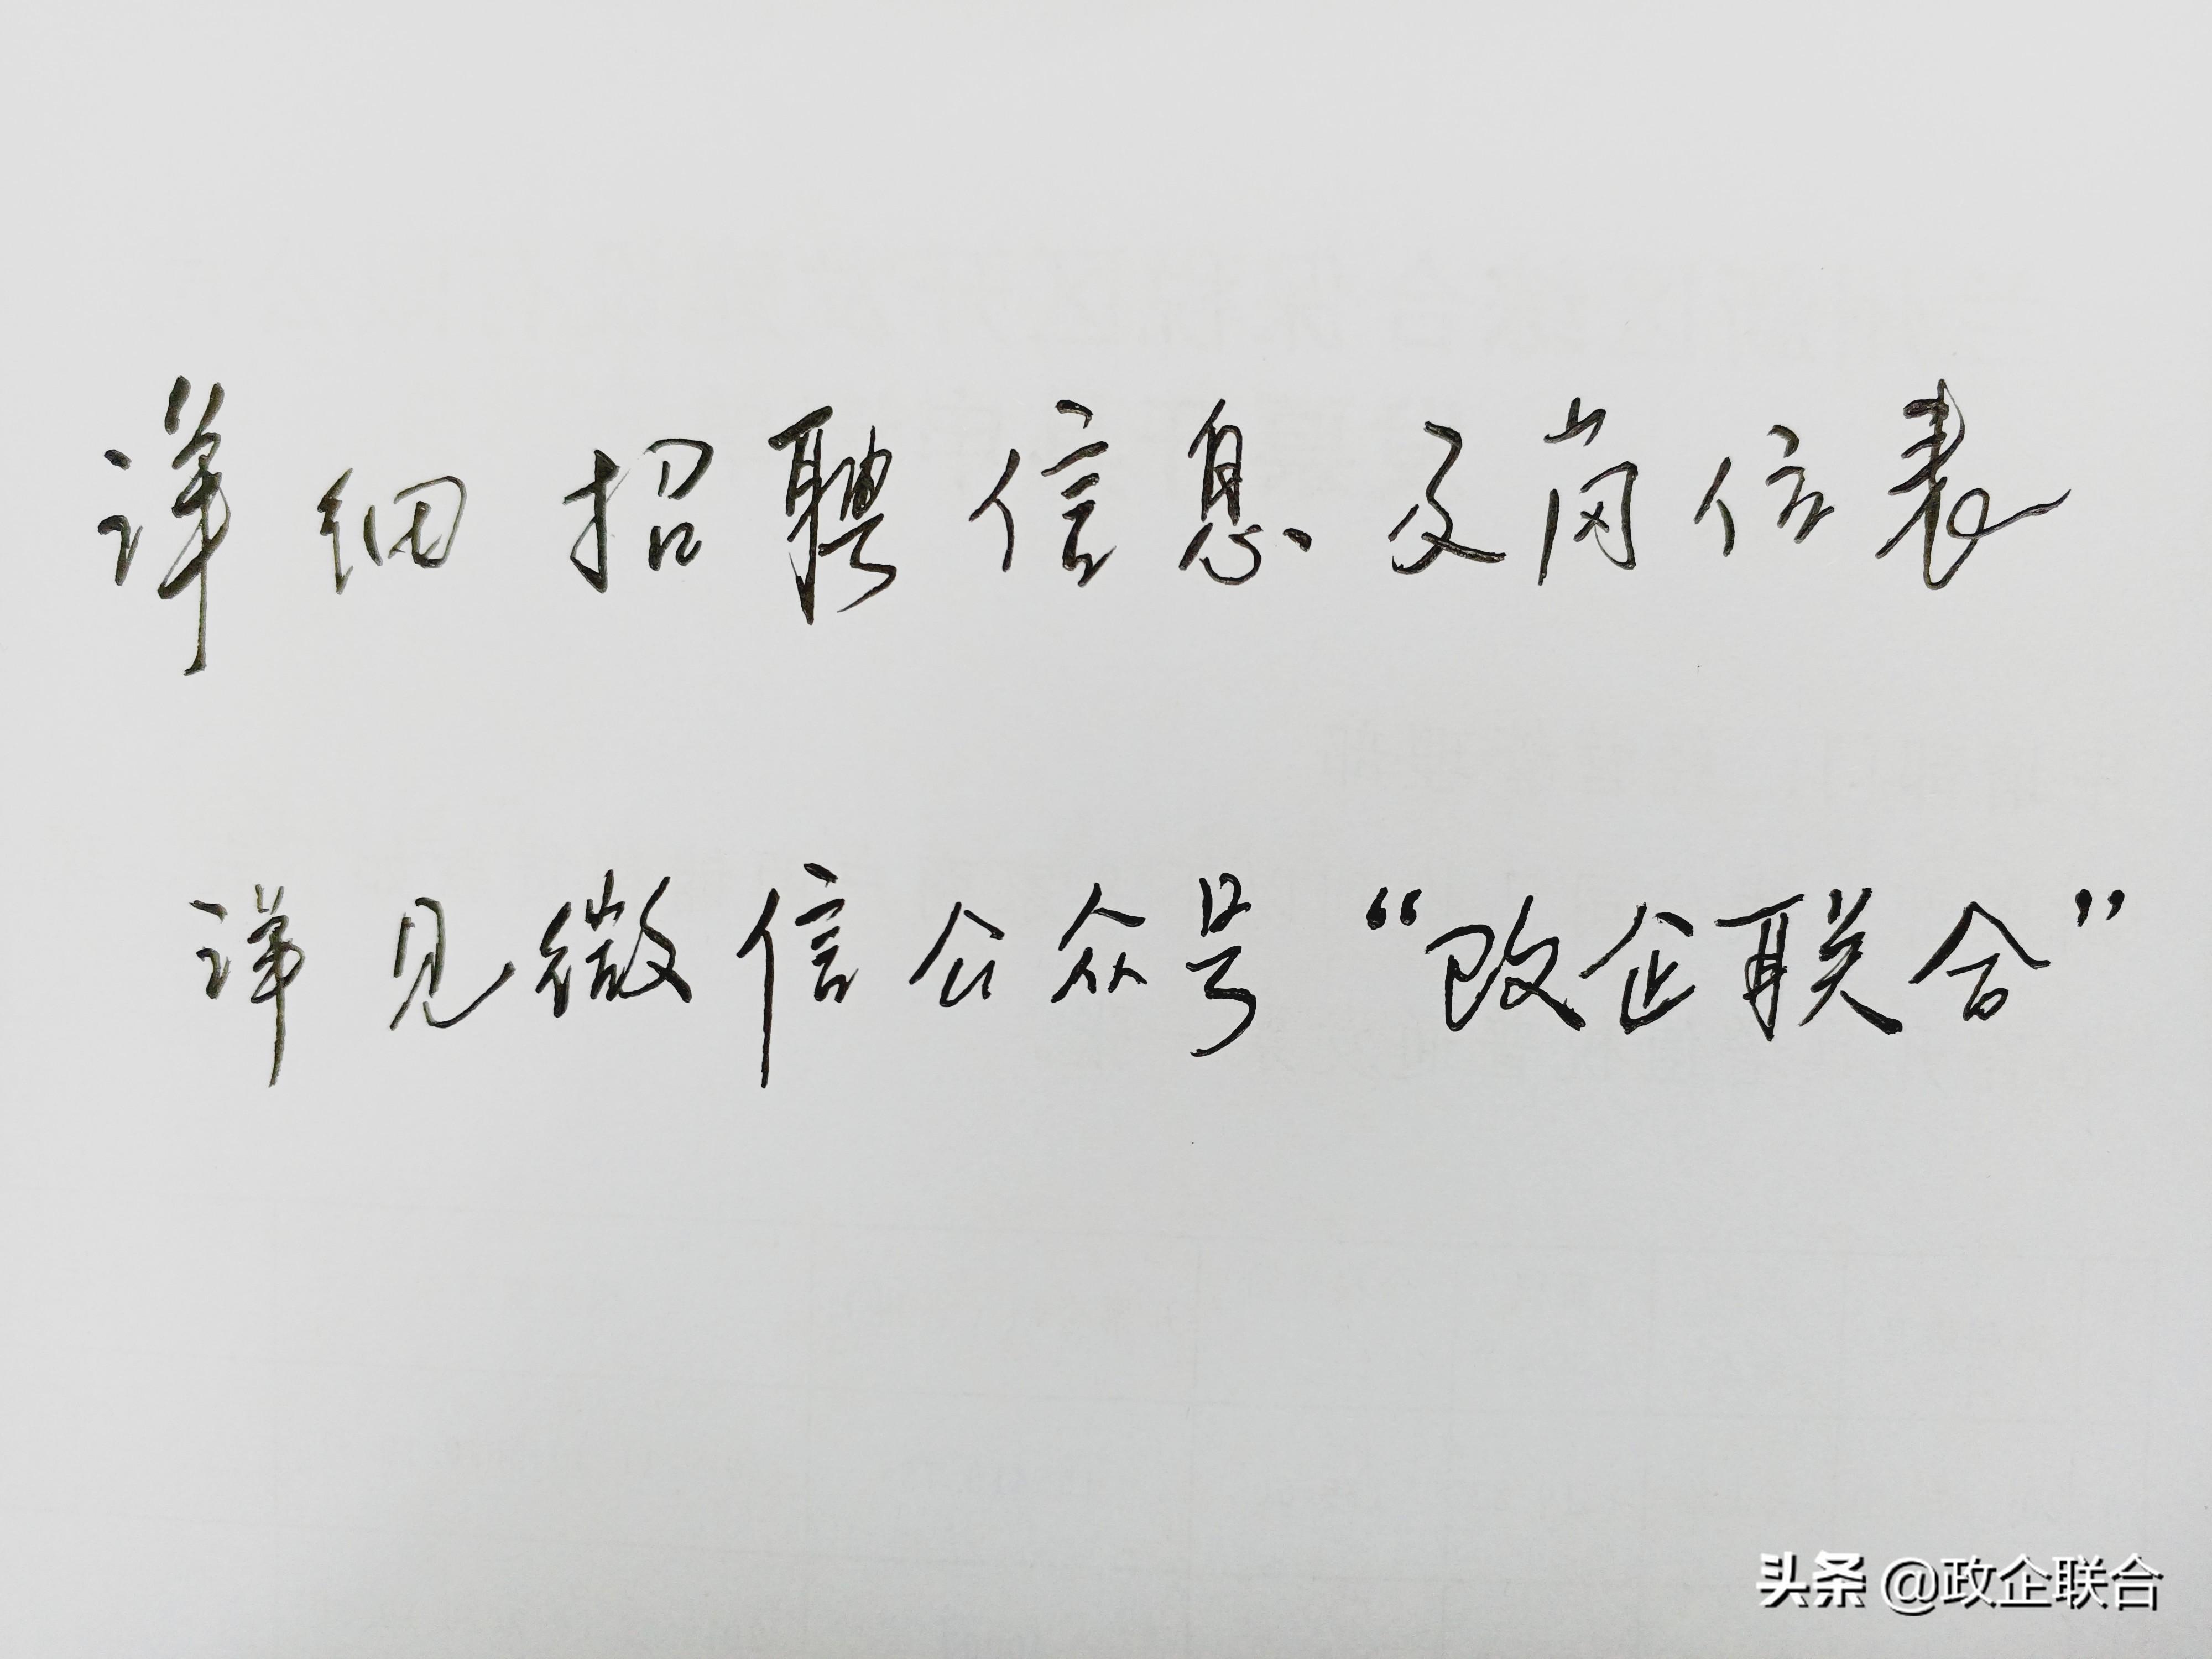 详细招聘信息及岗位表
详见微信公众号“政企联合”
头条 @政企联合